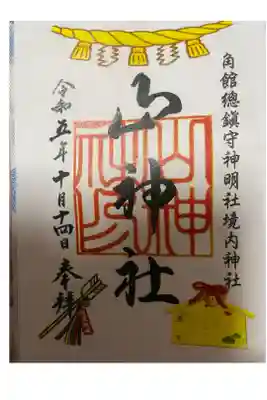 角館總鎮守神明社境内神社
山神社
令和五年十月十四日奉拝